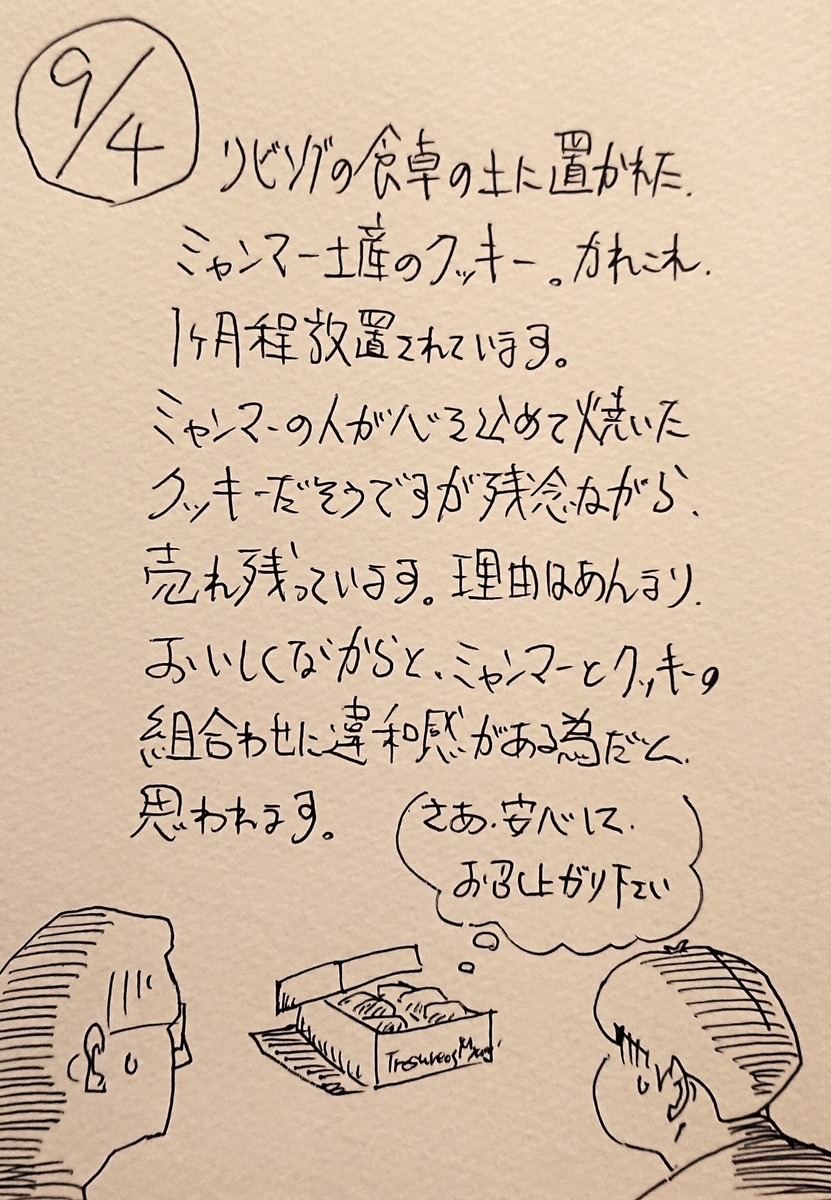 9/4
リビングの食卓の土に置かれた、
ミャンマー土産のクッキー。かれこれ、
1ヶ月程放置されています。
ミャンマーの人が心を込めて焼いた
クッキーだそうですが残念ながら、
売れ残っています。理由はあんまり、
おいしくないからと、ミャンマーとクッキーの
組合わせに違和感がある為だと、
思われます。
さあ、安心して、
お召し上がり下さい